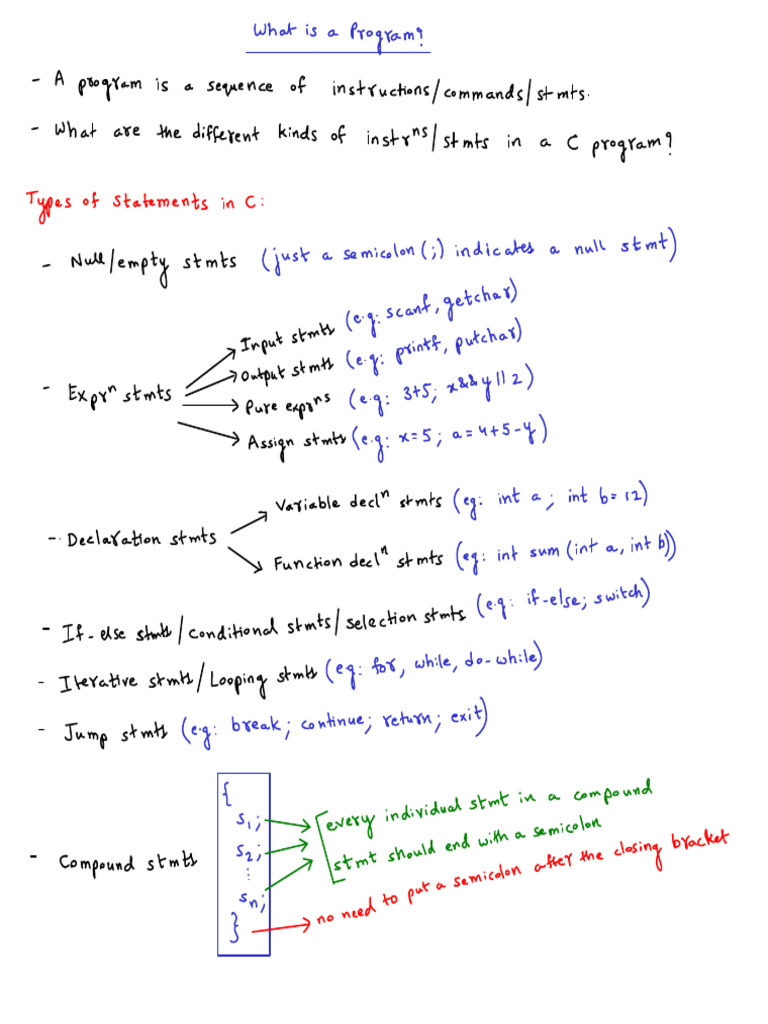 What is a Program?
- A program is a sequence of instructions/commands/stmts.
- What are the different kinds of instrⁿˢ/stmts in a C program?
Types of Statements in C:
- Null/empty stmts (just a semicolon (;) indicates a null stmt)
- Exprⁿ stmts
Input stmts (e.g: scanf, getchar)
Output stmts (e.g: printf, putchar)
Pure exprⁿˢ (e.g: 3+5; x&&y||2)
Assign stmts (e.g: x=5; a=4+5-y)
- Declaration stmts
Variable declⁿ stmts (eg: int a; int b=12)
Function declⁿ stmts (eg: int sum(int a, int b))
- If-else stmts/conditional stmts/selection stmts (e.g: if-else; switch)
- Iterative stmts/Looping stmts (eg: for, while, do-while)
- Jump stmts (e.g: break; continue; return; exit)
- Compound stmts
{
s₁;
s₂;
⋮
sₙ;
}
every individual stmt in a compound
stmt should end with a semicolon
no need to put a semicolon after the closing bracket